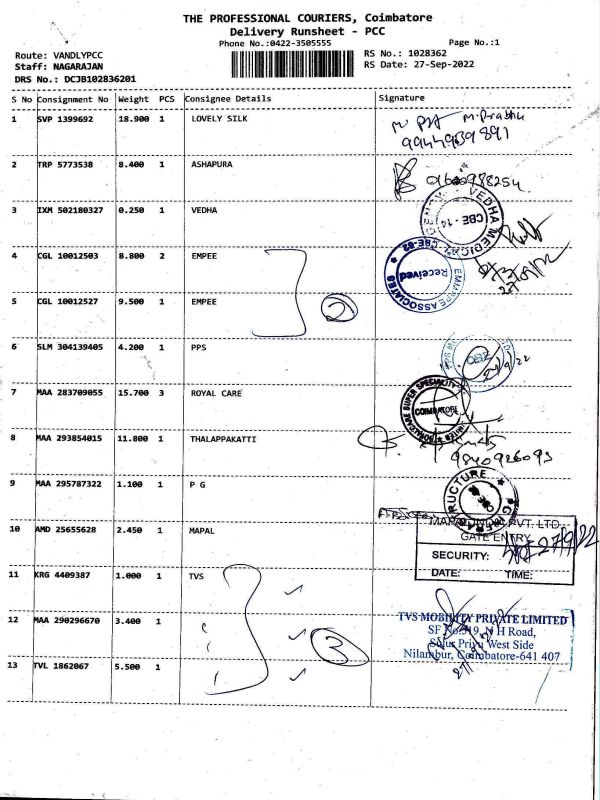 THE PROFESSIONAL COURIERS, Coimbatore
Delivery Runsheet - PCC
Phone No.:0422-3505555 Page No.:1
Route: VANDLYPCC RS No.: 1028362
Staff: NAGARAJAN RS Date: 27-Sep-2022
DRS No.: DCJB102836201
S No Consignment No Weight PCS Consignee Details Signature
1 SVP 1399692 18.900 1 LOVELY SILK
M.Prabhu
2 TRP 5773538 8.400 1 ASHAPURA
3 IXM 502180327 0.250 1 VEDHA
VEDHA MEDICAL AGENCY CBE - 14
4 CGL 10012503 8.800 2 EMPEE
ASSOCIATES CBE-62 Received
5 CGL 10012527 9.500 1 EMPEE
2
6 SLM 304139405 4.200 1 PPS
CBE
7 MAA 283709055 15.700 3 ROYAL CARE
ROYALCARE SUPER SPECIALITY COIMBATORE
8 MAA 293854015 11.800 1 THALAPPAKATTI
9840926093
9 MAA 295787322 1.100 1 P G
10 AMD 25655628 2.450 1 MAPAL
PVT. LTD.
GATE ENTRY
SECURITY: 27/9/22
DATE: TIME:
11 KRG 4409387 1.000 1 TVS
12 MAA 290296670 3.400 1
TVS MOBILITY PRIVATE LIMITED
SF No:519, N H Road,
West Side
Nilambur, Coimbatore-641 407
3
13 TVL 1862067 5.500 1